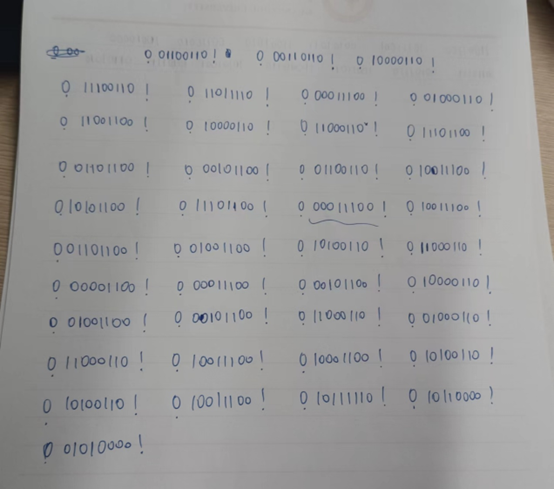 0 01100110 ! 0 00110110 ! 0 10000110 !
0 11100110 ! 0 11011110 ! 0 00011100 ! 0 01000110 !
0 11001100 ! 0 10000110 ! 0 11000110 ! 0 11101100 !
0 01101100 ! 0 00101100 ! 0 01100110 ! 0 10011100 !
0 10101100 ! 0 11101100 ! 0 00011100 ! 0 10011100 !
0 01101100 ! 0 01001100 ! 0 10100110 ! 0 11000110 !
0 00001100 ! 0 00011100 ! 0 00101100 ! 0 10000110 !
0 01001100 ! 0 00101100 ! 0 11000110 ! 0 01000110 !
0 11000110 ! 0 10011100 ! 0 10001100 ! 0 10100110 !
0 10100110 ! 0 10011100 ! 0 10111110 ! 0 10110000 !
0 01010000 !